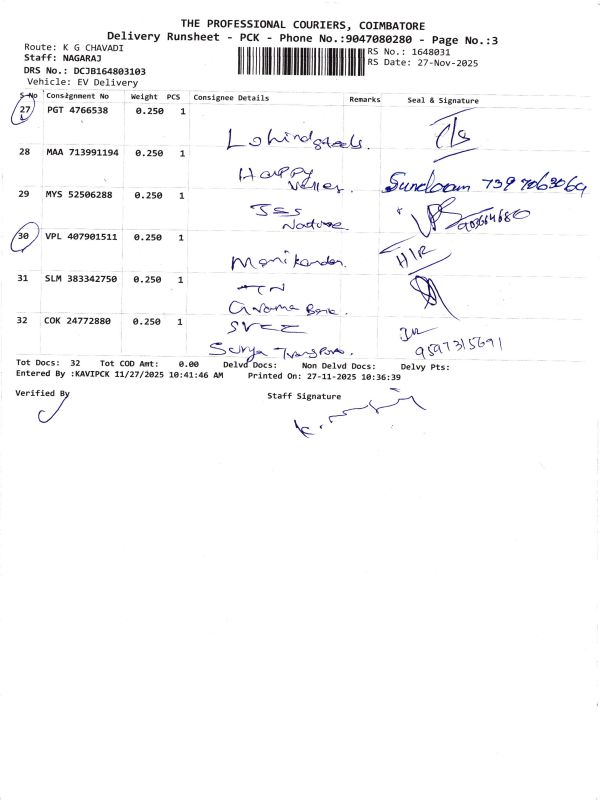 THE PROFESSIONAL COURIERS, COIMBATORE
Delivery Runsheet - PCK - Phone No.:9047080280 - Page No.:3
Route: K G CHAVADI
RS No.: 1648031
Staff: NAGARAJ
RS Date: 27-Nov-2025
DRS No.: DCJB164803103
Vehicle: EV Delivery
S-No Consignment No Weight PCS Consignee Details Remarks Seal & Signature
27 PGT 4766538 0.250 1
28 MAA 713991194 0.250 1
Happy Sundaram
29 MYS 52506288 0.250 1
Nature
30 VPL 407901511 0.250 1
Manikandan.
31 SLM 383342750 0.250 1
32 COK 24772880 0.250 1
Surya 9597315691
Tot Docs: 32 Tot COD Amt: 0.00 Delvd Docs: Non Delvd Docs: Delvy Pts:
Entered By :KAVIPCK 11/27/2025 10:41:46 AM Printed On: 27-11-2025 10:36:39
Verified By Staff Signature